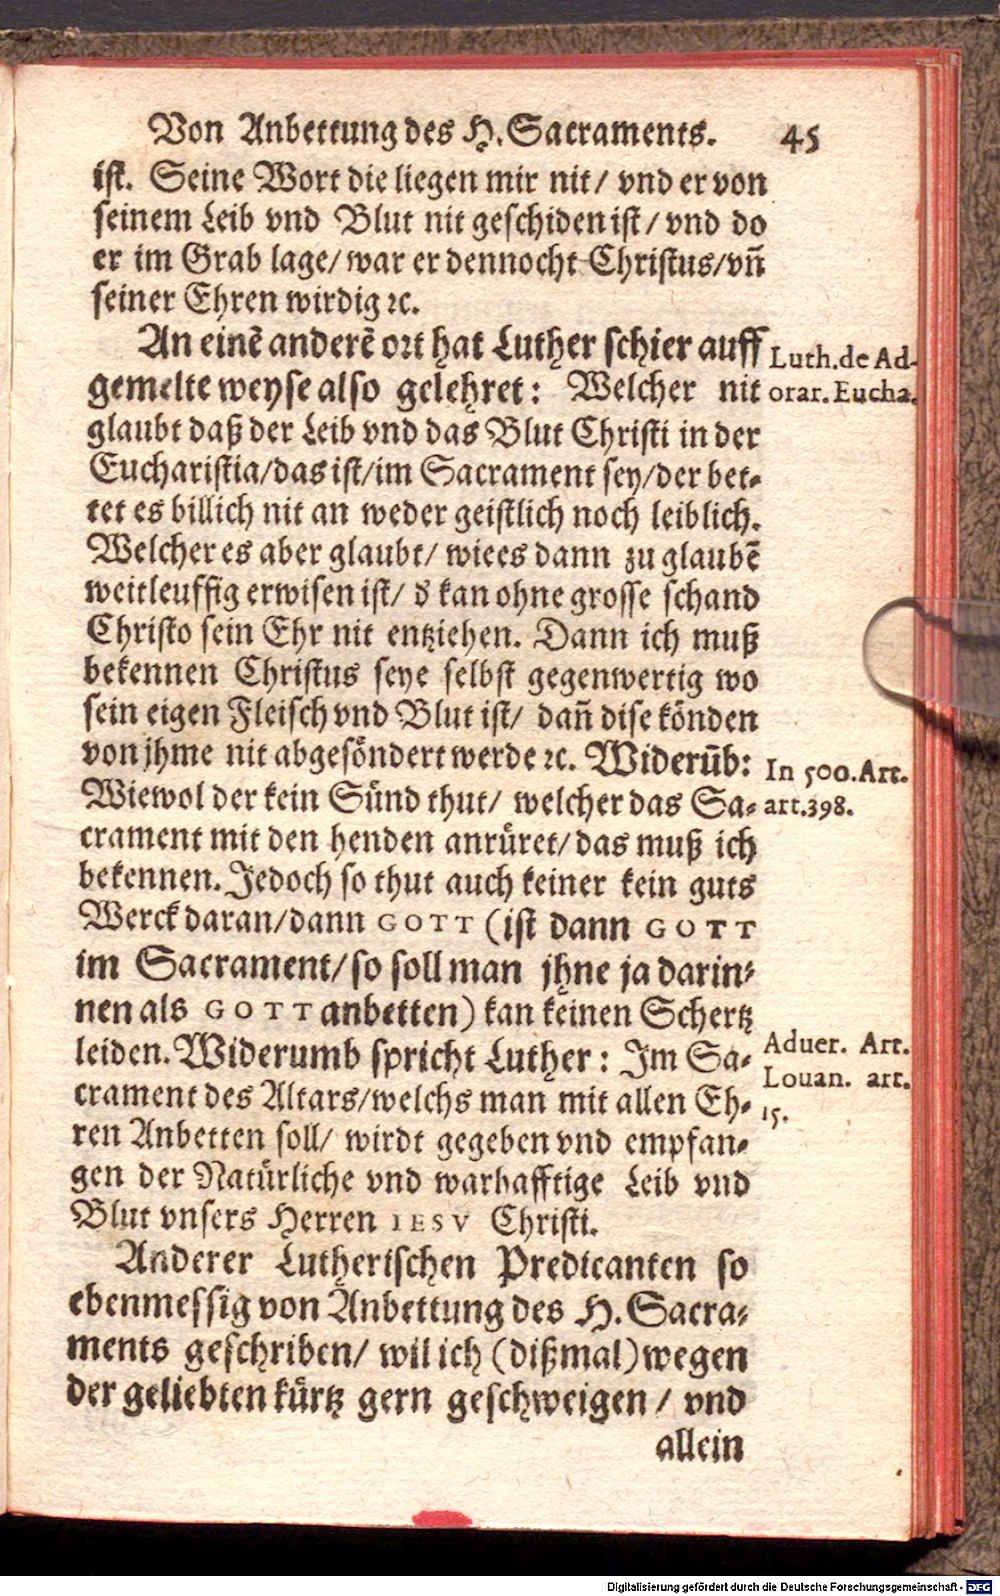 Von Anbettung des H. Sacraments. 45
ist. Seine Wort die liegen mir nit/ vnd er von
seinem Leib vnd Blut nit geschiden ist/ vnd do
er im Grab lage/ war er dennocht Christus/ vñ
seiner Ehren wirdig ꝛc.
An einẽ anderẽ ort hat Luther schier auff
Luth. de Ad-
gemelte weyse also gelehret: Welcher nit
orat. Eucha.
glaubt daß der Leib vnd das Blut Christi in der
Eucharistia/ das ist/ im Sacrament sey/ der bet-
tet es billich nit an weder geistlich noch leiblich.
Welcher es aber glaubt/ wie es dann zu glaubẽ
weitleuffig erwisen ist/ d kan ohne grosse schand
Christo sein Ehr nit entziehen. Dann ich muß
bekennen Christus seye selbst gegenwertig wo
sein eigen Fleisch vnd Blut ist/ dañ dise koͤnden
von jhme nit abgesoͤndert werde ꝛc. Widerūb:
In 500. Art.
Wiewol der kein Suͤnd thut/ welcher das Sa-
art. 398.
crament mit den henden anruͤret/ das muß ich
bekennen. Jedoch so thut auch keiner kein guts
Werck daran/ dann GOTT (ist dann GOTT
im Sacrament/ so soll man jhne ja darin-
nen als GOTT anbetten) kan keinen Schertz
leiden. Widerumb spricht Luther: Im Sa-
Aduer. Art.
crament des Altars/ welchs man mit allen Eh-
Louan. art.
15.
ren Anbetten soll/ wirdt gegeben vnd empfan-
gen der Natuͤrliche vnd warhafftige Leib vnd
Blut vnsers Herren IESV Christi.
Anderer Lutherischen Predicanten so
ebenmessig von Anbettung des H. Sacra-
ments geschriben/ wil ich (dißmal) wegen
der geliebten kuͤrtz gern geschweigen/ vnd
allein
Digitalisierung gefördert durch die Deutsche Forschungsgemeinschaft - DFG